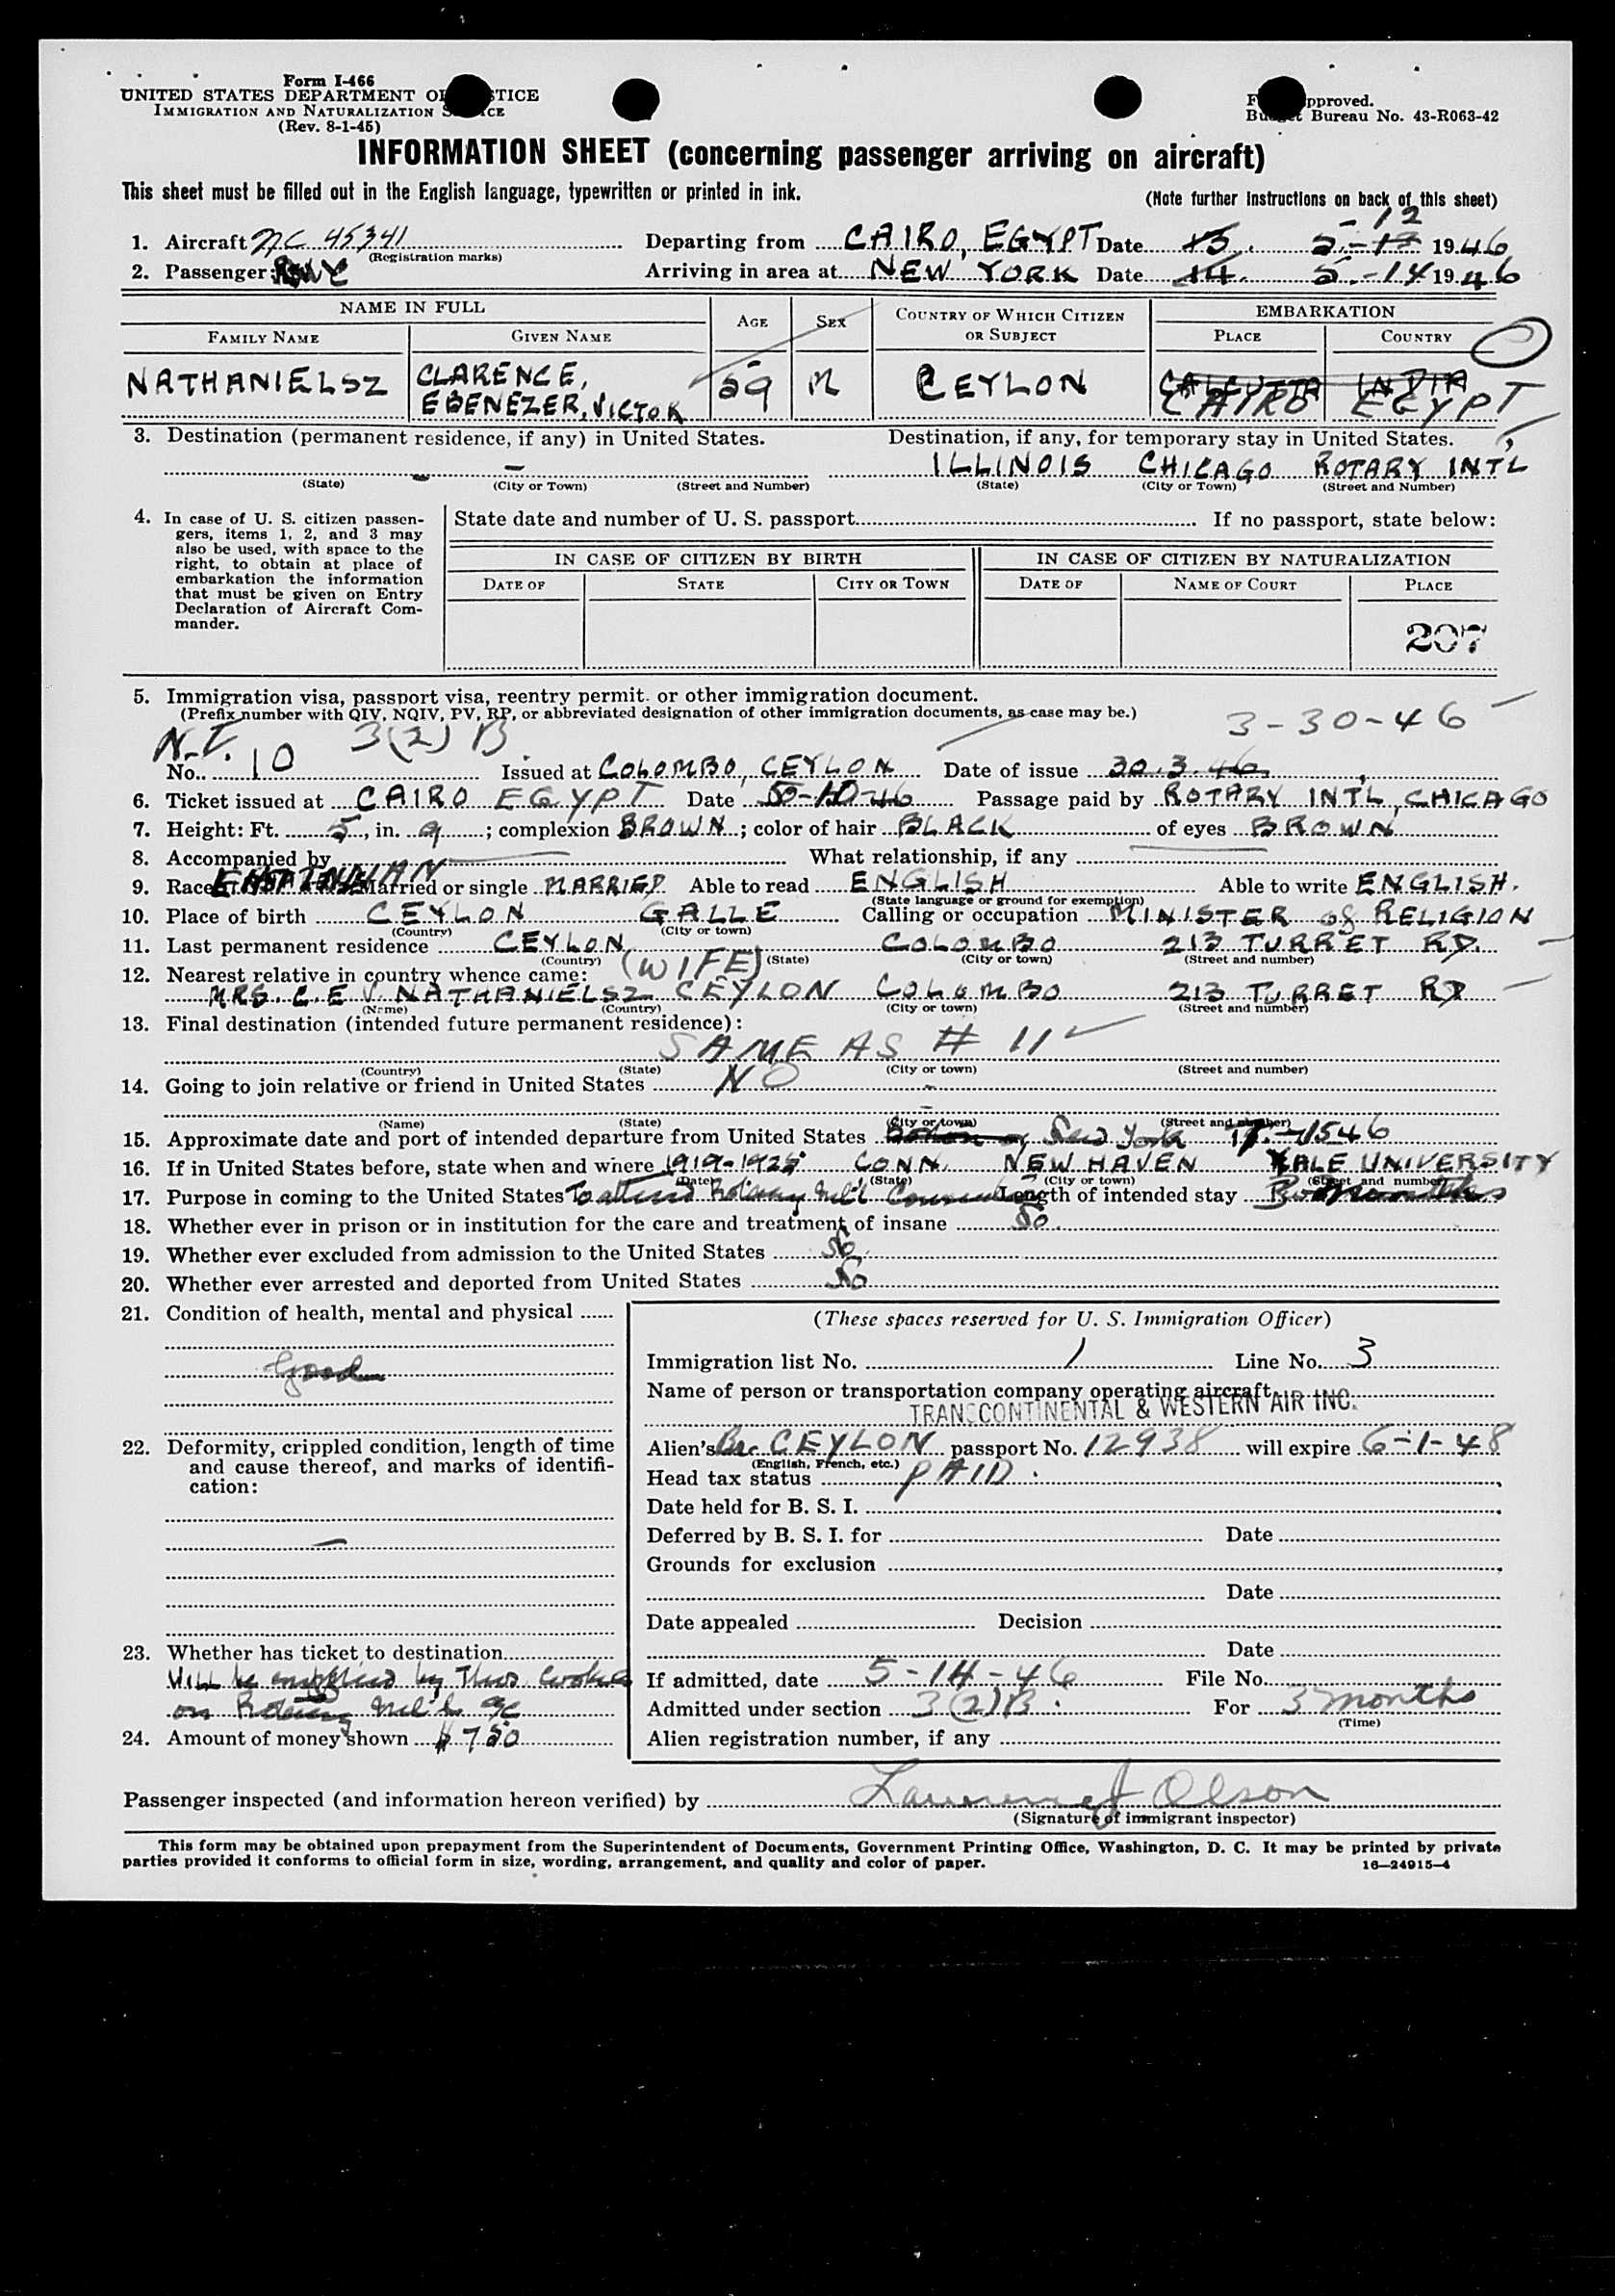 Form I-466
UNITED STATES DEPARTMENT OF JUSTICE
IMMIGRATION AND NATURALIZATION SERVICE
(Rev. 8-1-45)
Form approved.
Budget Bureau No. 43-R063-42
INFORMATION SHEET (concerning passenger arriving on aircraft)
This sheet must be filled out in the English language, typewritten or printed in ink.
(Note further instructions on back of this sheet)
- 12
1. Aircraft NC 45341 Departing from CAIRO, EGYPT Date 13. 5-17 1946
(Registration marks)
2. Passenger Arriving in area at NEW YORK Date 14. 5-14 1946
NAME IN FULL AGE SEX COUNTRY OF WHICH CITIZEN OR SUBJECT EMBARKATION
FAMILY NAME GIVEN NAME PLACE COUNTRY
NATHANIELSZ CLARENCE, 59 M CEYLON CALCUTTA INDIA
EBENEZER, VICTOR CAIRO EGYPT
3. Destination (permanent residence, if any) in United States. Destination, if any, for temporary stay in United States.
- ILLINOIS CHICAGO ROTARY INT'L
(State) (City or Town) (Street and Number) (State) (City or Town) (Street and Number)
4. In case of U. S. citizen passengers, items 1, 2, and 3 may also be used, with space to the right, to obtain at place of embarkation the information that must be given on Entry Declaration of Aircraft Commander.
State date and number of U. S. passport If no passport, state below:
IN CASE OF CITIZEN BY BIRTH IN CASE OF CITIZEN BY NATURALIZATION
DATE OF STATE CITY OR TOWN DATE OF NAME OF COURT PLACE
207
5. Immigration visa, passport visa, reentry permit. or other immigration document.
(Prefix number with QIV, NQIV, PV, RP, or abbreviated designation of other immigration documents, as case may be.)
N.I. 3(2) B 3-30-46
No. 10 Issued at COLOMBO, CEYLON Date of issue 30.3.46
6. Ticket issued at CAIRO EGYPT Date 5-10-46 Passage paid by ROTARY INTL, CHICAGO
7. Height: Ft. 5, in. 9; complexion BROWN; color of hair BLACK of eyes BROWN
8. Accompanied by What relationship, if any
9. Race EAST INDIAN Married or single MARRIED Able to read ENGLISH Able to write ENGLISH.
(State language or ground for exemption)
10. Place of birth CEYLON GALLE Calling or occupation MINISTER of RELIGION
(Country) (City or town)
11. Last permanent residence CEYLON COLOMBO 213 TURRET RD.
(Country) (State) (City or town) (Street and number)
12. Nearest relative in country whence came: (WIFE)
MRS. C. E V. NATHANIELSZ CEYLON COLOMBO 213 TURRET RD
(Name) (Country) (City or town) (Street and number)
13. Final destination (intended future permanent residence):
SAME AS # 11
(Country) (State) (City or town) (Street and number)
14. Going to join relative or friend in United States NO -
(Name) (State) (City or town) (Street and number)
15. Approximate date and port of intended departure from United States New York
16. If in United States before, state when and where 1919-1925 CONN. NEW HAVEN YALE UNIVERSITY
(Date) (State) (City or town) (Street and number)
17. Purpose in coming to the United States To attend Rotary Int'l Convention Length of intended stay months
18. Whether ever in prison or in institution for the care and treatment of insane No.
19. Whether ever excluded from admission to the United States No.
20. Whether ever arrested and deported from United States No
21. Condition of health, mental and physical
Good
22. Deformity, crippled condition, length of time and cause thereof, and marks of identification:
-
23. Whether has ticket to destination
Will be supplied by Thos Cooks
on Rotary Int'l a/c
24. Amount of money shown $ 750
(These spaces reserved for U. S. Immigration Officer)
Immigration list No. 1 Line No. 3
Name of person or transportation company operating aircraft
TRANSCONTINENTAL & WESTERN AIR INC.
Alien's Br. CEYLON passport No. 12938 will expire 6-1-48
(English, French, etc.)
Head tax status PAID.
Date held for B. S. I.
Deferred by B. S. I. for Date
Grounds for exclusion
Date
Date appealed Decision
Date
If admitted, date 5-14-46 File No.
Admitted under section 3(2)B. For 3 months
(Time)
Alien registration number, if any
Passenger inspected (and information hereon verified) by Lawrence J Olson
(Signature of immigrant inspector)
This form may be obtained upon prepayment from the Superintendent of Documents, Government Printing Office, Washington, D. C. It may be printed by private
parties provided it conforms to official form in size, wording, arrangement, and quality and color of paper.
16—24915-4